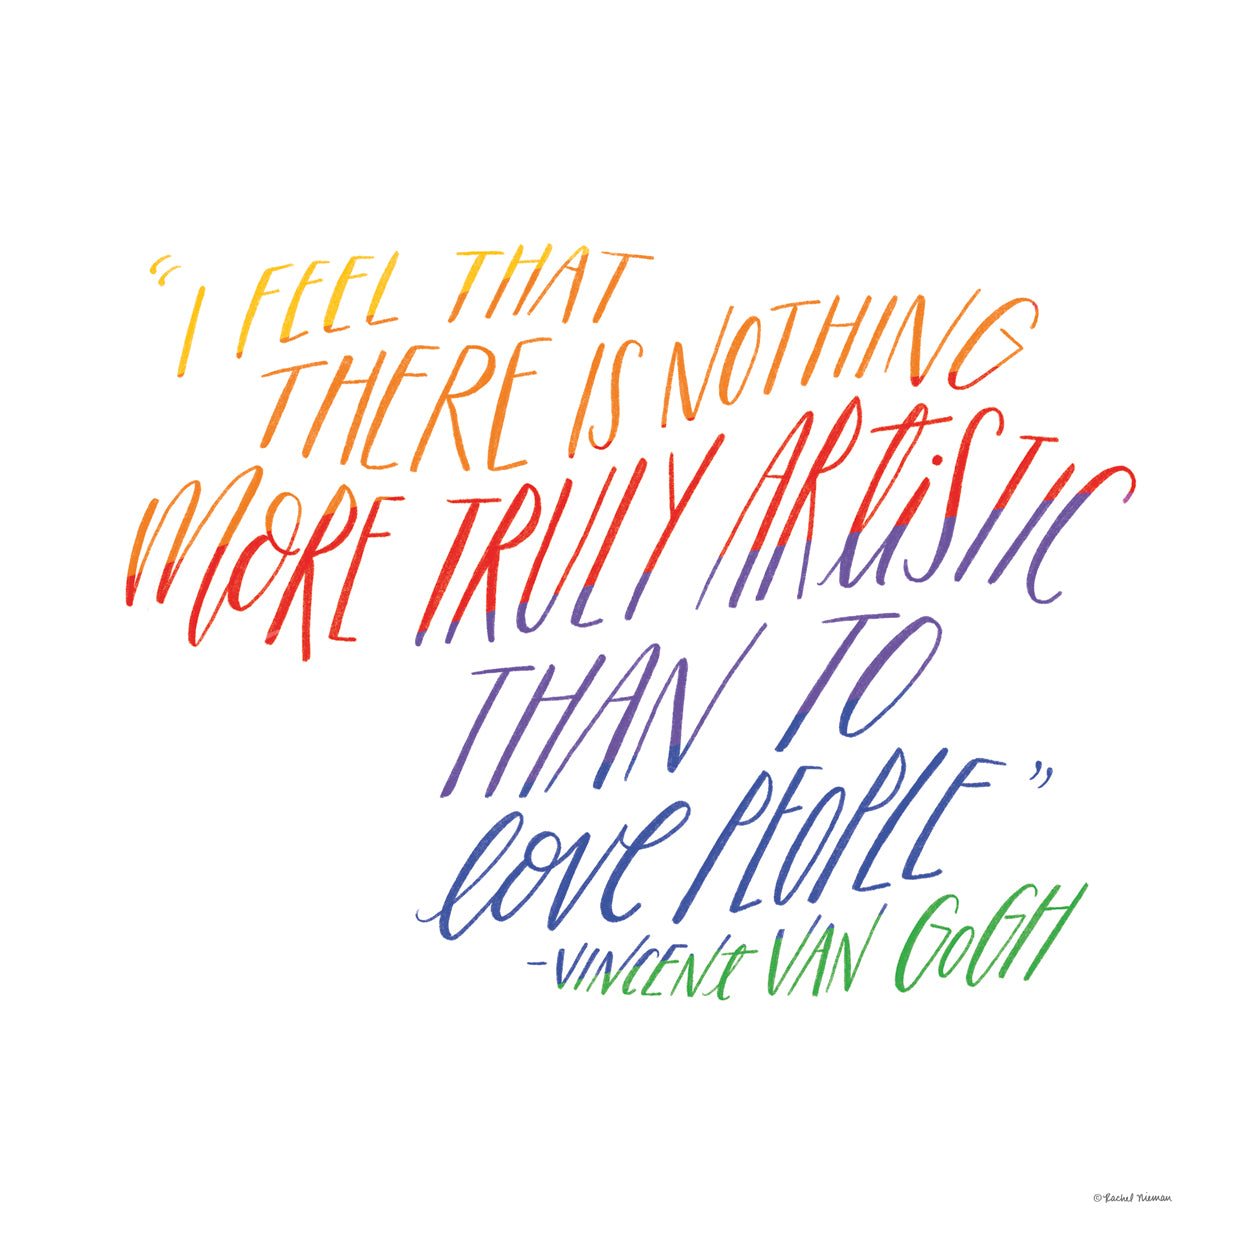 “I FEEL THAT
THERE IS NOTHING
MORE TRULY ARTiSTIC
THAN TO
love PEOPLE”
-VINCENt VAN GoGH
©Rachel Nieman